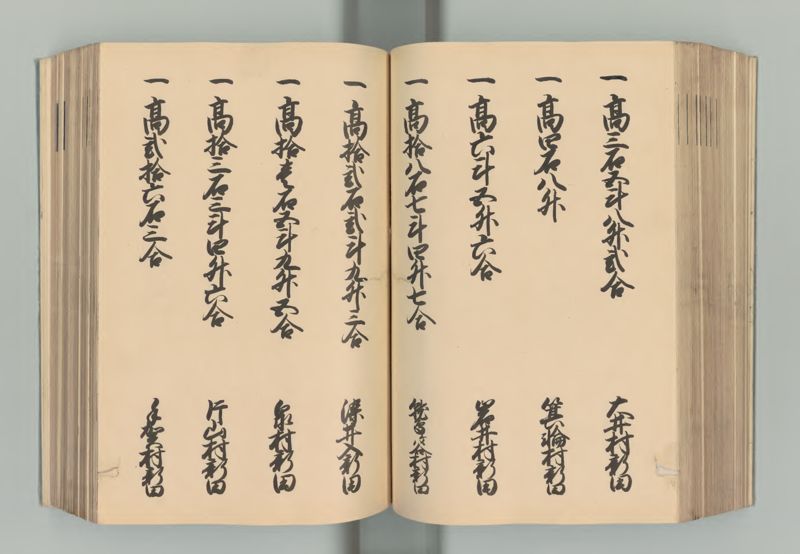 一高三石五斗八升弐合
大井村新田
一高四石八升
箕輪村新田
一高六斗五升六合
岩井村新田
一高拾八石七斗四升七合
村新田
一高拾弐石弐斗九升三合
深井入新田
一高拾壱石五斗九升五合
泉村新田
一高拾三石三斗四升六合
片山村新田
一高弐拾六石三合
村新田